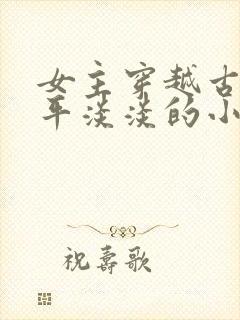 女主穿越古
平淡淡的小
祝壽歌